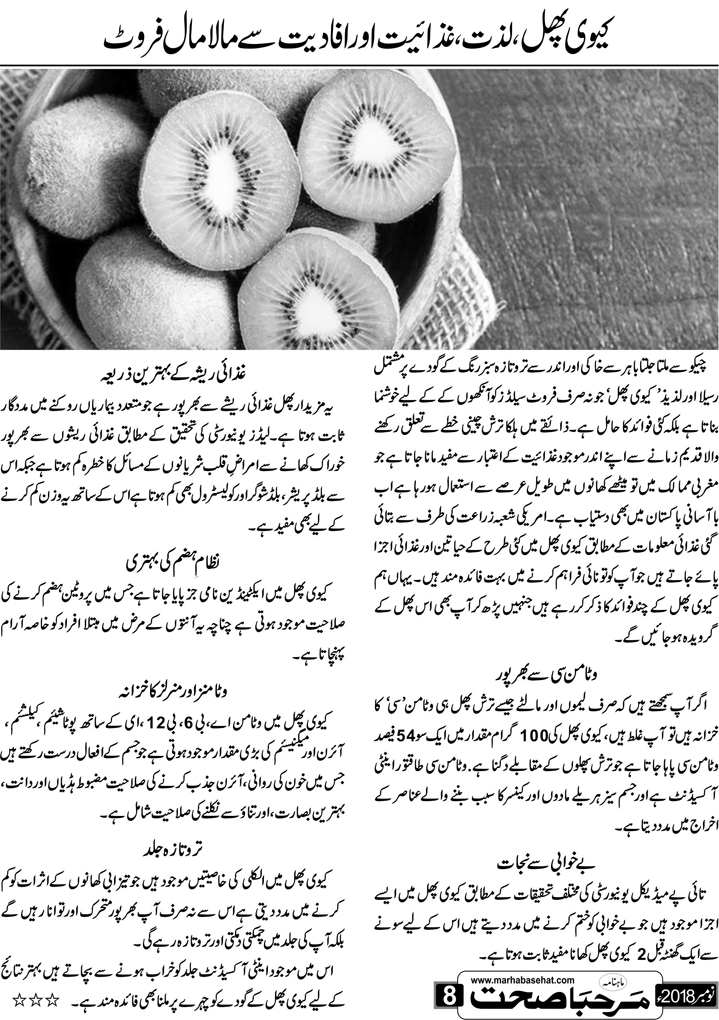 کیوی پھل، لذت، غذائیت اور افادیت سے مالا مال فروٹ
چیکو سے ملتا جلتا باہر سے خاکی اور اندر سے تروتازہ سبز رنگ کے گودے پر مشتمل
رسیلا اور لذیذ ’کیوی پھل‘ جو نہ صرف فروٹ سیلڈز کو آنکھوں کے کے لیے خوشنما
بناتا ہے بلکہ کئی فوائد کا حامل ہے۔ ذائقے میں ہلکا ترش چینی خطے سے تعلق رکھنے
والا قدیم زمانے سے اپنے اندر موجود غذائیت کے اعتبار سے مفید مانا جاتا ہے جو
مغربی ممالک میں تو میٹھے کھانوں میں طویل عرصے سے استعمال ہو رہا ہے اب
با آسانی پاکستان میں بھی دستیاب ہے۔ امریکی شعبہ زراعت کی طرف سے بتائی
گئی غذائی معلومات کے مطابق کیوی پھل میں کئی طرح کے حیاتین اور غذائی اجزا
پائے جاتے ہیں جو آپ کو توانائی فراہم کرنے میں بہت فائدہ مند ہیں۔ یہاں ہم
کیوی پھل کے چند فوائد کا ذکر کر رہے ہیں جنہیں پڑھ کر آپ بھی اس پھل کے
گرویدہ ہو جائیں گے۔
وٹامن سی سے بھرپور
اگر آپ سمجھتے ہیں کہ صرف لیموں اور مالٹے جیسے ترش پھل ہی وٹامن ’سی‘ کا
خزانہ ہیں تو آپ غلط ہیں، کیوی پھل کی 100 گرام مقدار میں ایک سو 54 فیصد
وٹامن سی پایا جاتا ہے جو ترش پھلوں کے مقابلے دگنا ہے۔ وٹامن سی طاقتور اینٹی
آکسیڈنٹ ہے اور جسم سے زہریلے مادوں اور کینسر کا سبب بننے والے عناصر کے
اخراج میں مدد دیتا ہے۔
بے خوابی سے نجات
تائی پے میڈیکل یونیورسٹی کی مختلف تحقیقات کے مطابق کیوی پھل میں ایسے
اجزا موجود ہیں جو بے خوابی کو ختم کرنے میں مدد دیتے ہیں اس کے لیے سونے
سے ایک گھنٹہ قبل 2 کیوی پھل کھانا مفید ثابت ہوتا ہے۔
غذائی ریشہ کے بہترین ذریعہ
یہ مزیدار پھل غذائی ریشے سے بھرپور ہے جو متعدد بیماریاں روکنے میں مددگار
ثابت ہوتا ہے۔ لیڈز یونیورسٹی کی تحقیق کے مطابق غذائی ریشوں سے بھرپور
خوراک کھانے سے امراض قلب شریانوں کے مسائل کا خطرہ کم ہوتا ہے جبکہ اس
سے بلڈ پریشر، بلڈ شوگر اور کولیسٹرول بھی کم ہوتا ہے اس کے ساتھ یہ وزن کم کرنے
کے لیے بھی مفید ہے۔
نظام ہضم کی بہتری
کیوی پھل میں ایکٹینڈین نامی جز پایا جاتا ہے جس میں پروٹین ہضم کرنے کی
صلاحیت موجود ہوتی ہے چنانچہ یہ آنتوں کے مرض میں مبتلا افراد کو خاصہ آرام
پہنچاتا ہے۔
وٹامنز اور منرلز کا خزانہ
کیوی پھل میں وٹامن اے، بی 6، بی 12، ای کے ساتھ پوٹاشیئم، کیلشئم،
آئرن اور میگنیشیئم کی بڑی مقدار موجود ہوتی ہے جو جسم کے افعال درست رکھتے ہیں
جس میں خون کی روانی، آئرن جذب کرنے کی صلاحیت مضبوط ہڈیاں اور دانت،
بہترین بصارت، اور تناؤ سے نکلنے کی صلاحیت شامل ہے۔
تروتازہ جلد
کیوی پھل میں الکلی کی خاصیتیں موجود ہیں جو تیزابی کھانوں کے اثرات کو کم
کرنے میں مدد دیتی ہے اس سے نہ صرف آپ بھرپور متحرک اور توانا رہیں گے
بلکہ آپ کی جلد میں چمکتی دمکتی اور تروتازہ رہے گی۔
اس میں موجود اینٹی آکسیڈنٹ جلد کو خراب ہونے سے بچاتے ہیں بہتر نتائج
کے لیے کیوی پھل کے گودے کو چہرے پر ملنا بھی فائدہ مند ہے۔ ☆☆☆
www.marhabasehat.com
نومبر 2018ء
ماہنامہ
مرحبا صحت
8